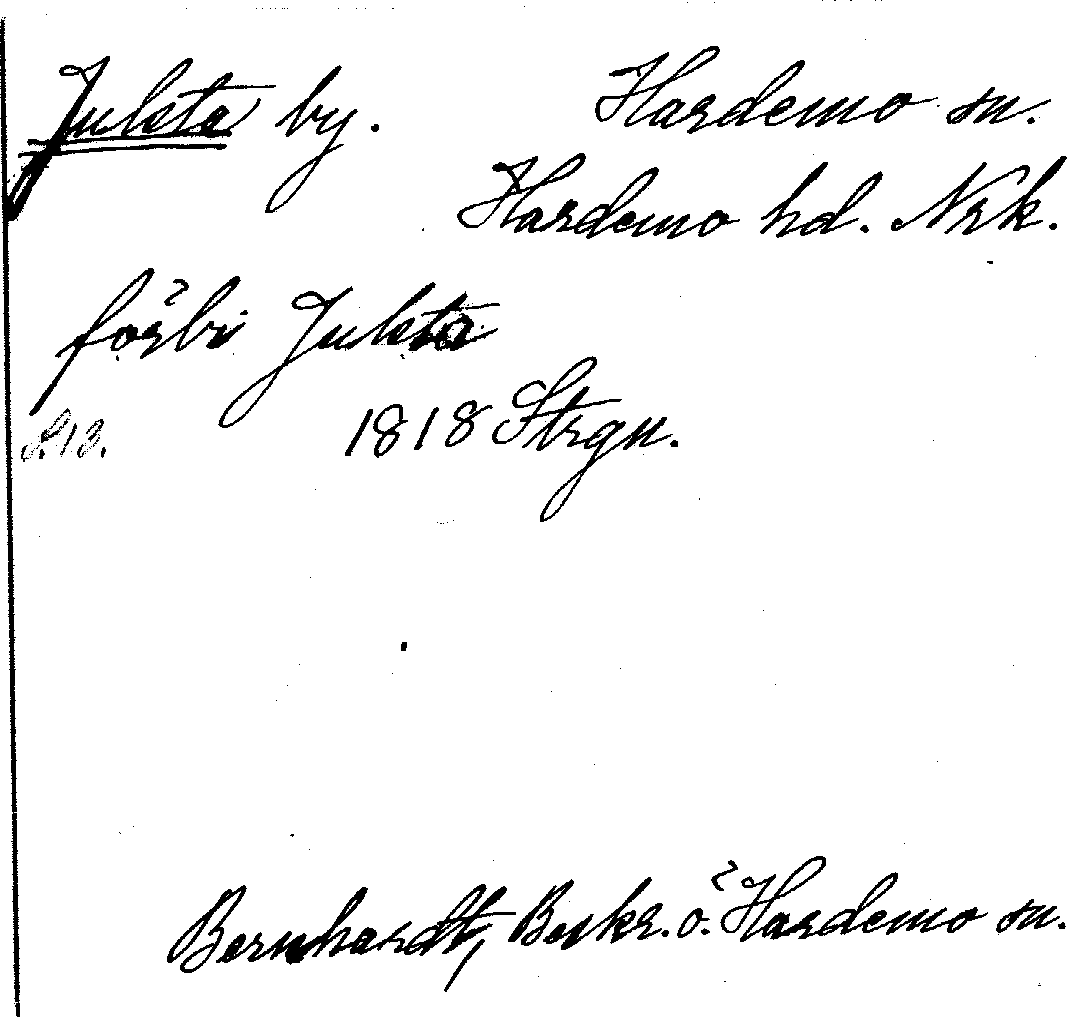 Julsta by. Hardemo sn.
Hardemo hd. Nrk.
förbi Julsta
S.13. 1818 Strgn.
Bernhardt, Beskr. ö. Hardemo sn.